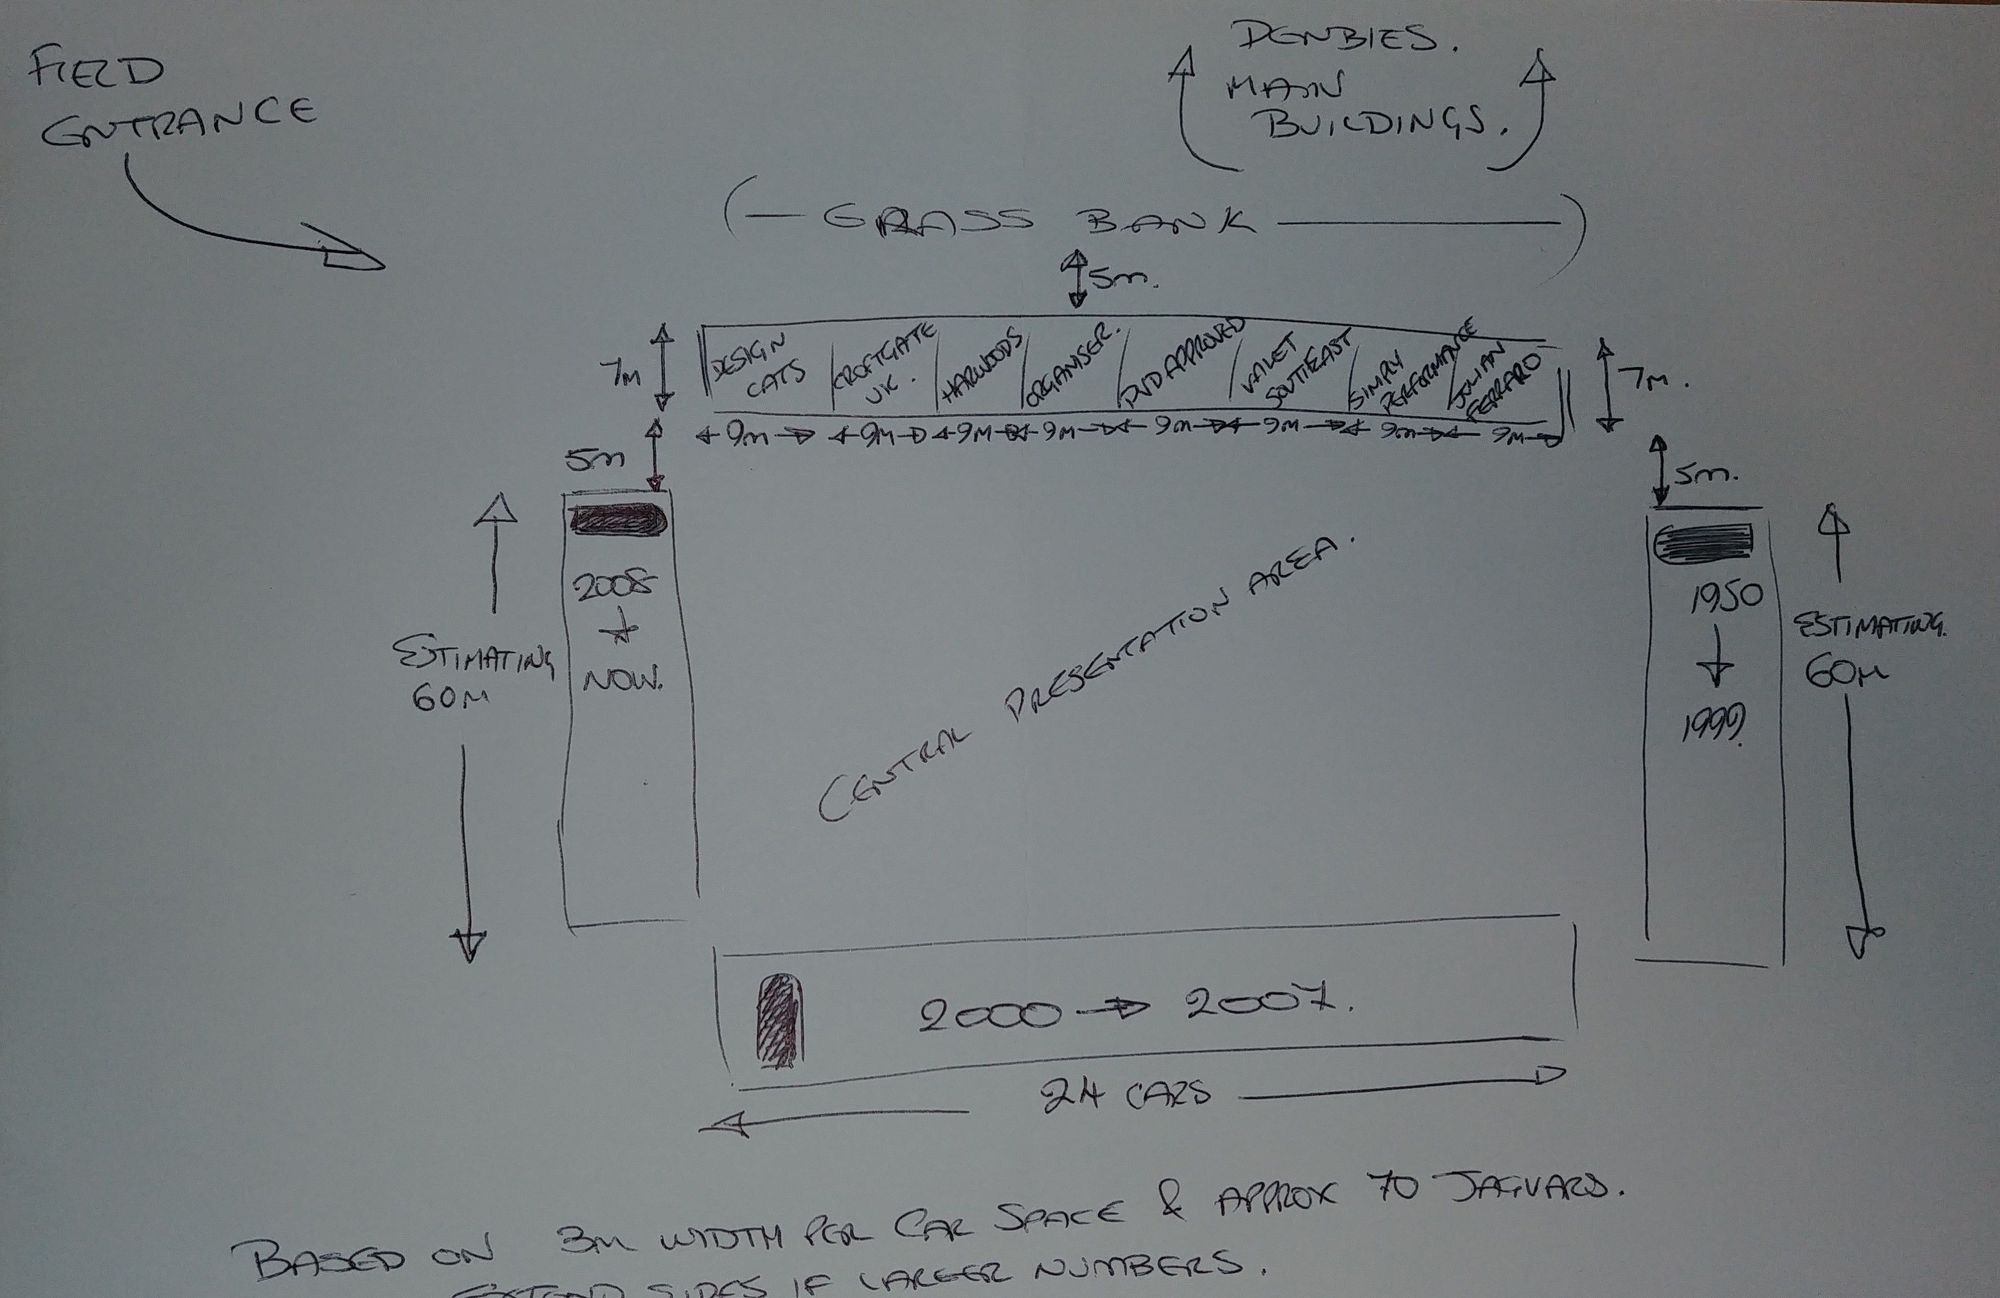 FIELD
ENTRANCE
DENBIES.
MAIN
BUILDINGS.
GRASS BANK
5m.
7M
DESIGN
CATS
CROFTGATE
UK.
HARWOODS
ORGANISER.
PVD APPROVED
VALET
SOUTHEAST
SIMPLY
PERFORMANCE
JULIAN
FERRARO
7M.
9m 9M 9M 9m 9m 9m 9m 9m
5m
5m.
2008
NOW.
ESTIMATING
60M
CENTRAL PRESENTATION AREA.
1950
1999.
ESTIMATING.
60M
2000 → 2007.
24 CARS
BASED ON 3M WIDTH PER CAR SPACE & APPROX 70 JAGUARS.
EXTEND SIDES IF LARGER NUMBERS.